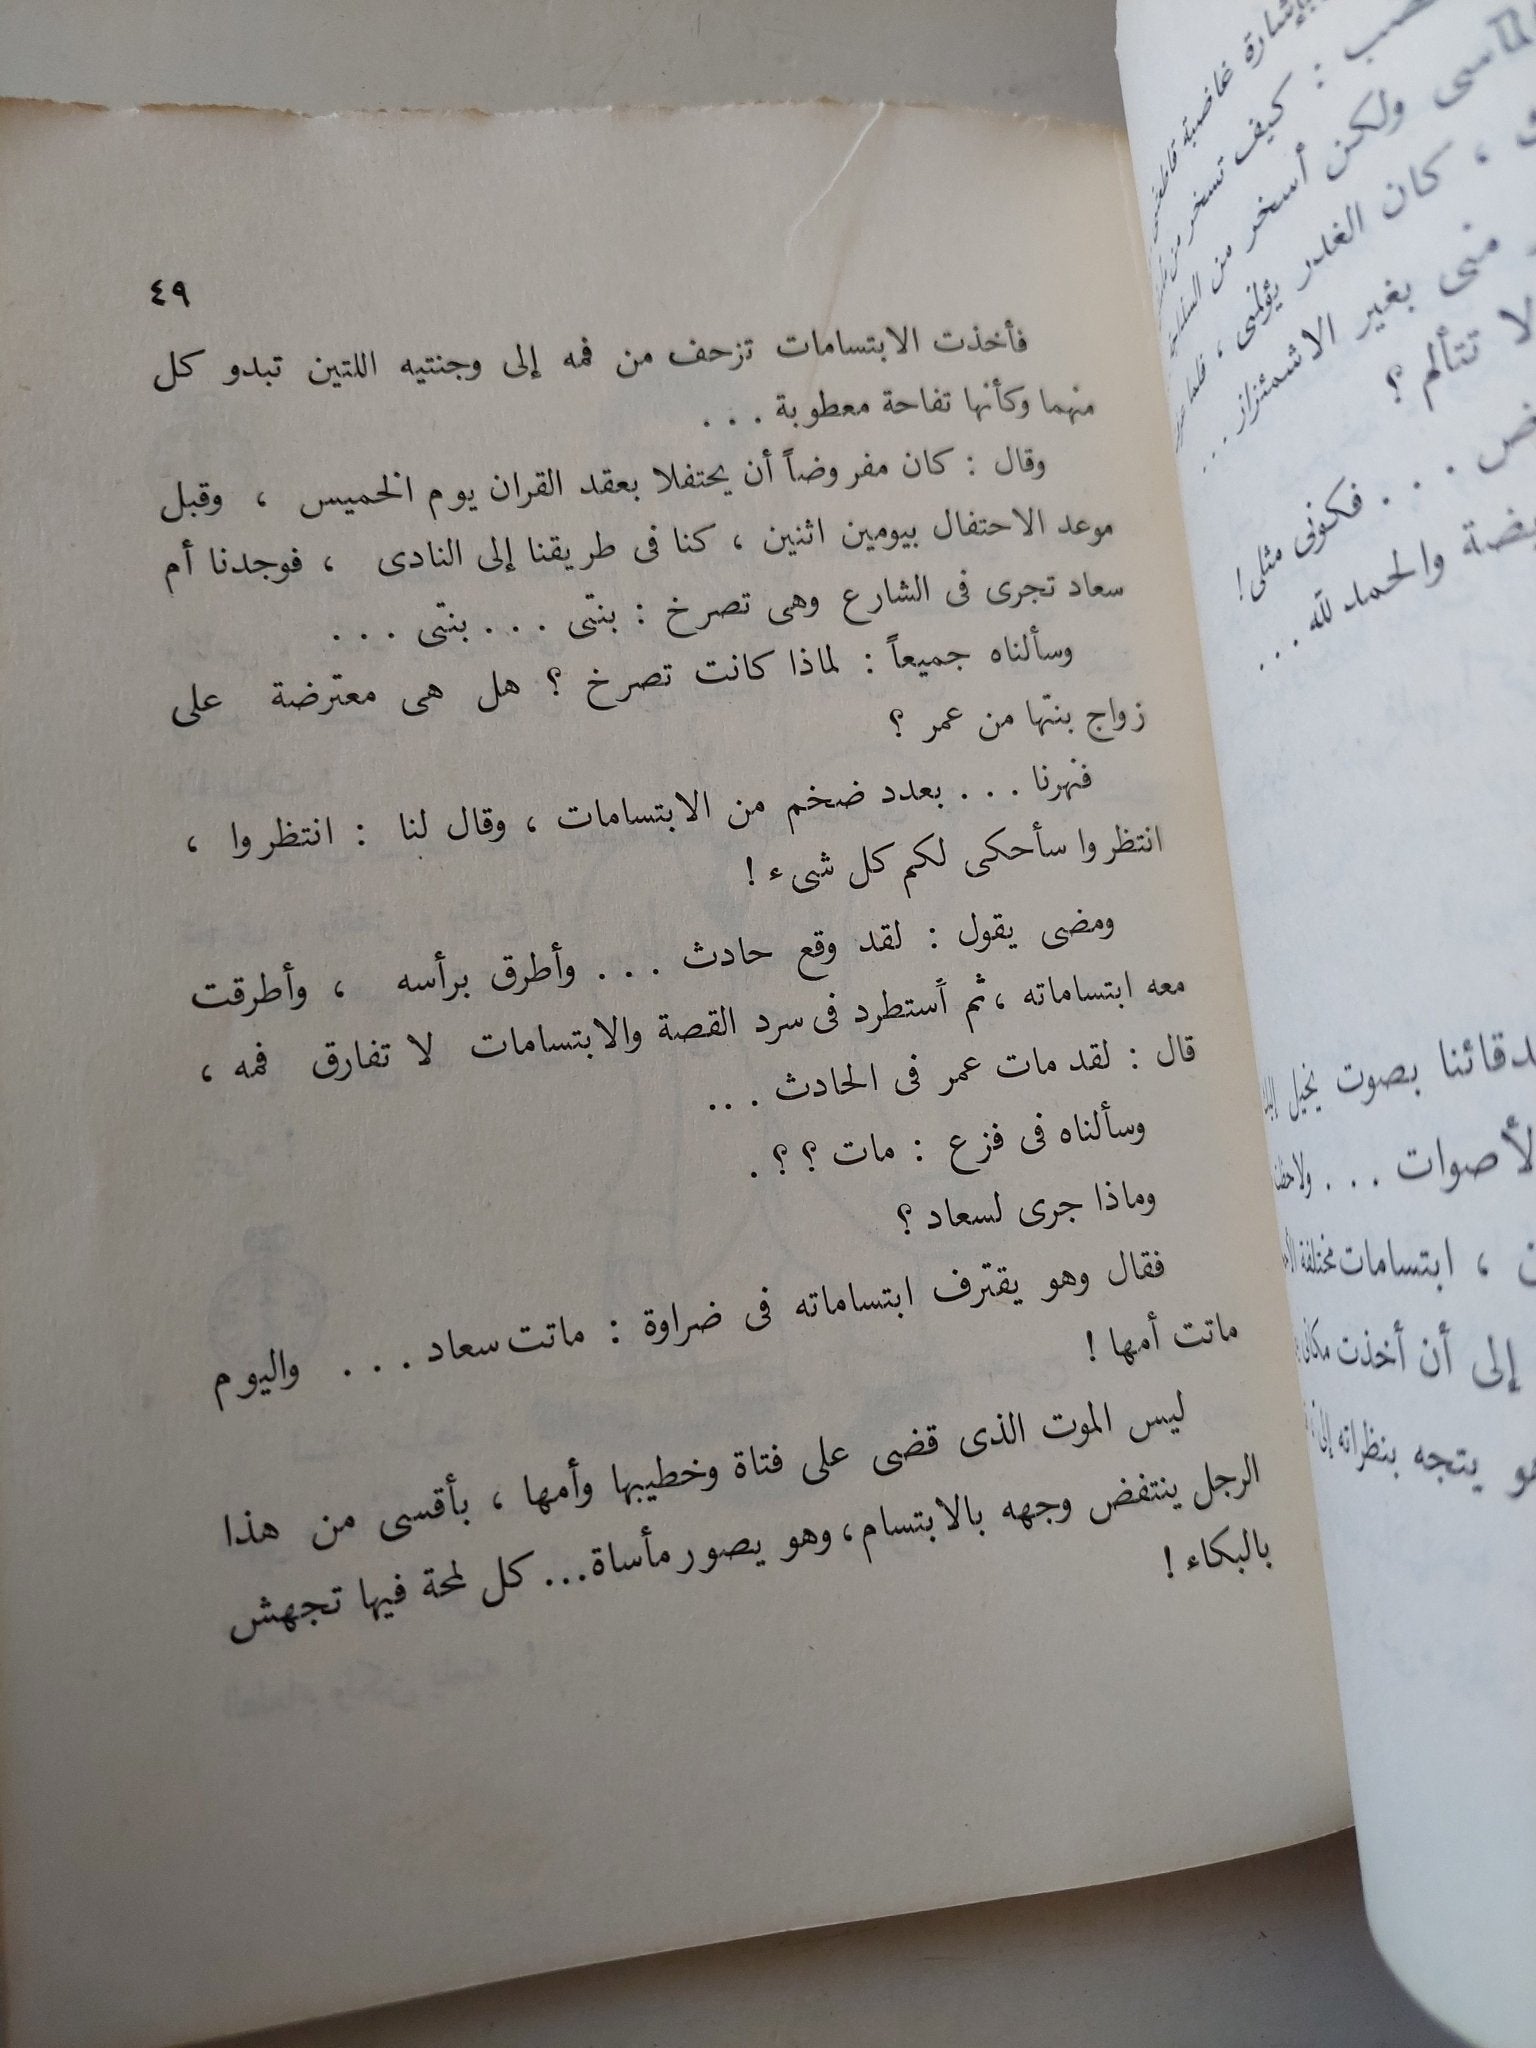 ٤٩
فأخذت الابتسامات تزحف من فمه إلى وجنتيه اللتين تبدو كل
منهما وكأنها تفاحة معطوبة . . .
وقال : كان مفروضاً أن يحتفلا بعقد القران يوم الخميس ، وقبل
موعد الاحتفال بيومين اثنين ، كنا فى طريقنا إلى النادى ، فوجدنا أم
سعاد تجرى فى الشارع وهى تصرخ : بنتى . . . بنتى . . .
وسألناه جميعاً : لماذا كانت تصرخ ؟ هل هى معترضة على
زواج بنتها من عمر ؟
فنهرنا . . . بعدد ضخم من الابتسامات ، وقال لنا : انتظروا ،
انتظروا سأحكى لكم كل شىء !
ومضى يقول : لقد وقع حادث . . . وأطرق برأسه ، وأطرقت
معه ابتساماته ، ثم أستطرد فى سرد القصة والابتسامات لا تفارق فمه ،
قال : لقد مات عمر فى الحادث . . .
وسألناه فى فزع : مات ؟ ؟ .
وماذا جرى لسعاد ؟
فقال وهو يقترف ابتساماته فى ضراوة : ماتت سعاد . . . واليوم
ماتت أمها !
ليس الموت الذى قضى على فتاة وخطيبها وأمها ، بأقسى من هذا
الرجل ينتفض وجهه بالابتسام ، وهو يصور مأساة... كل لمحة فيها تجهش
بالبكاء !
بإشارة غاضبة
: كيف تسخر من
ولكن أسخر من
، كان الغدر يؤلمنى ، فلما
منى بغير الاشمئزاز . . .
لا تتألم ؟
. . . فكونى مثلى !
والحمد لله . . .
بصوت يخيل
الأصوات . . . ولاحظنا
، ابتسامات مختلفة
إلى أن أخذت مكانى
يتجه بنظراته